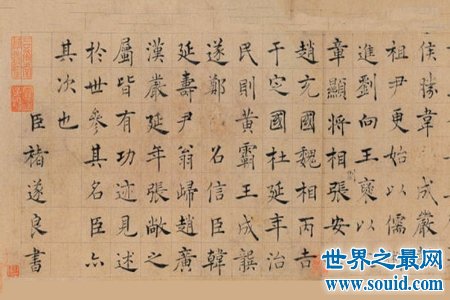 侯勝韋成嚴
祖尹更始以儒
進劉向王襃以
章顯將相張安
趙充國魏相丙吉
于定國杜延年治
民則黃霸王成龔
遂鄭 名信臣韓
延壽尹翁歸趙廣
漢嚴延年張敞之
屬皆有功迹見述
於世參其名臣亦
其次也
臣褚遂良書
世界之最网
www.guoid.com